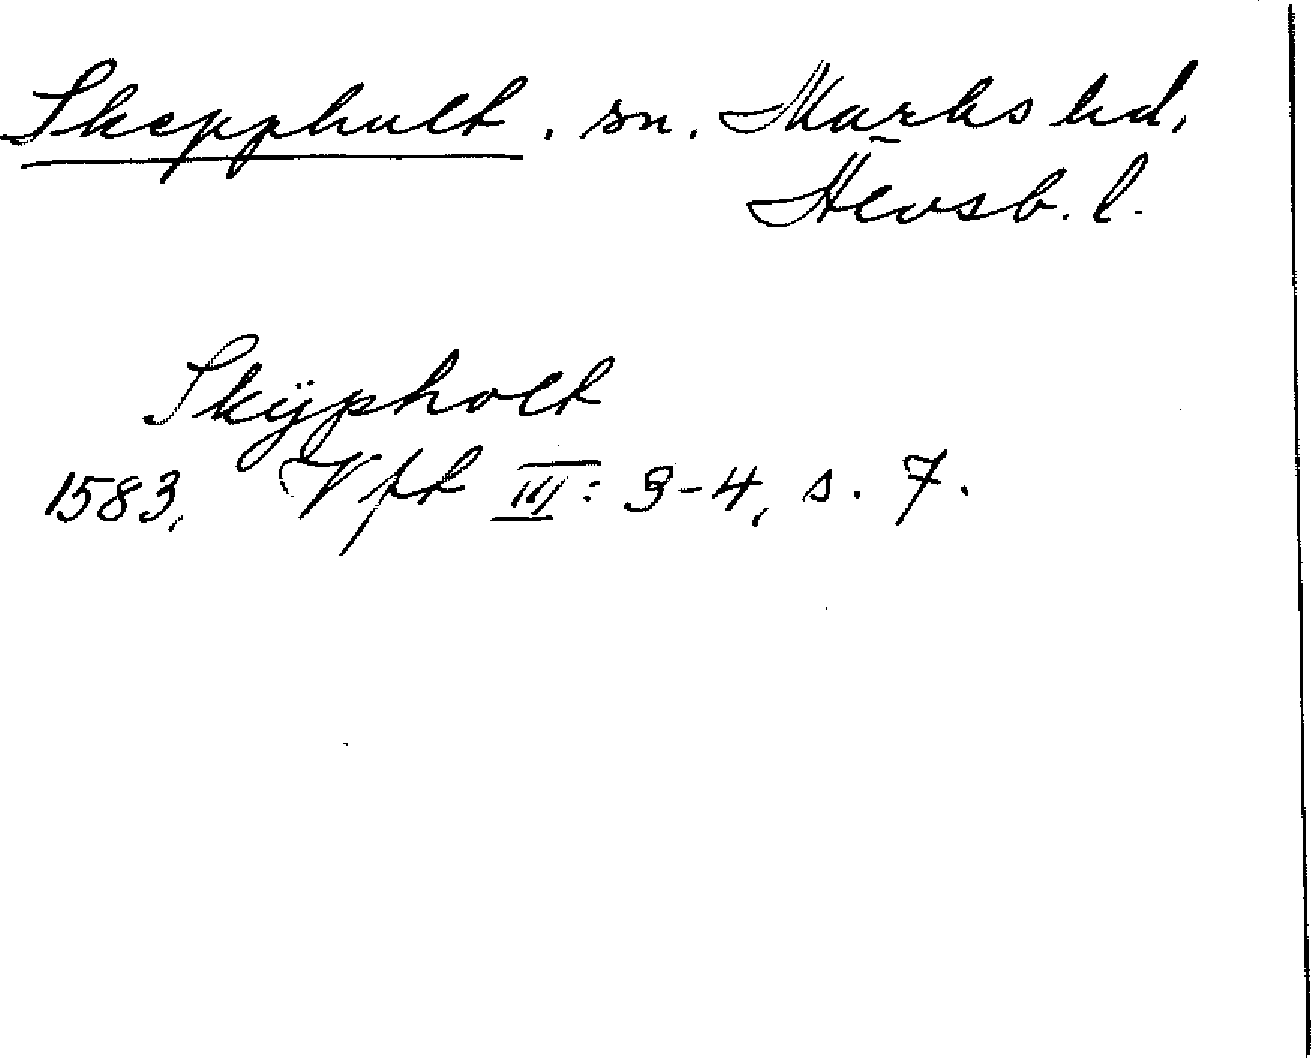 Skepphult. sn. Marks hd,
Älvsb. l.
Skÿpholt
1583, Vft III: 3-4, s. 7.